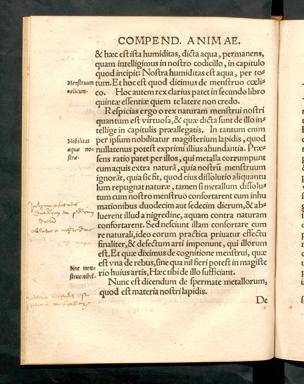 COMPEND. ANIMAE.
& hæc est ista humiditas, dicta aqua, permanens,
quam intelligimus in nostro codicillo, in capitulo
quod incipit: Nostra humiditas est aqua, per to-
tum. Et hoc est quod dicimus de menstruo cœli-
co. Hoc autem rex clarius patet in secundo libro
quintæ essentiæ quem te latere non credo.
Menstruum
cœlicum.
Respicias ergo o rex naturam menstrui nostri
quantum est virtuosa, & quæ dicta sunt de illo in-
tellige in capitulis præallegatis. In tantum enim
per ipsum nobilitatur magisterium lapidis, quod
nullatenus potest exprimi illius abundantia. Præ-
sens ratio patet per illos, qui metalla corrumpunt
cum aquis extra naturā, quia nostrū menstruum
ignorāt, quia sic fit, quod eius dissolutio aliquan-
tulum repugnat naturæ, tamen si metallum dissolu-
tum cum nostro menstruo confortarent cum inhu-
mationibus duodecim aut sedecim dierum, & ab-
luerent illud a nigredine, aquam contra naturam
confortarent. Sed nesciunt illam confortare cum
re naturali, ideo eorum practica priuatur effectu
finaliter, & defectum arti imponunt, qui illorum
est. Et quæ diximus de cognitione menstrui, quæ
est vna de rebus, sine qua nil fieri potest in magiste
rio huius artis, Hæc tibi de illo sufficiant.
Nobilitas
aquæ no-
stræ.
Sine men-
struo nihil.
Nunc est dicendum de spermate metallorum,
quod est materia nostri lapidis.
De